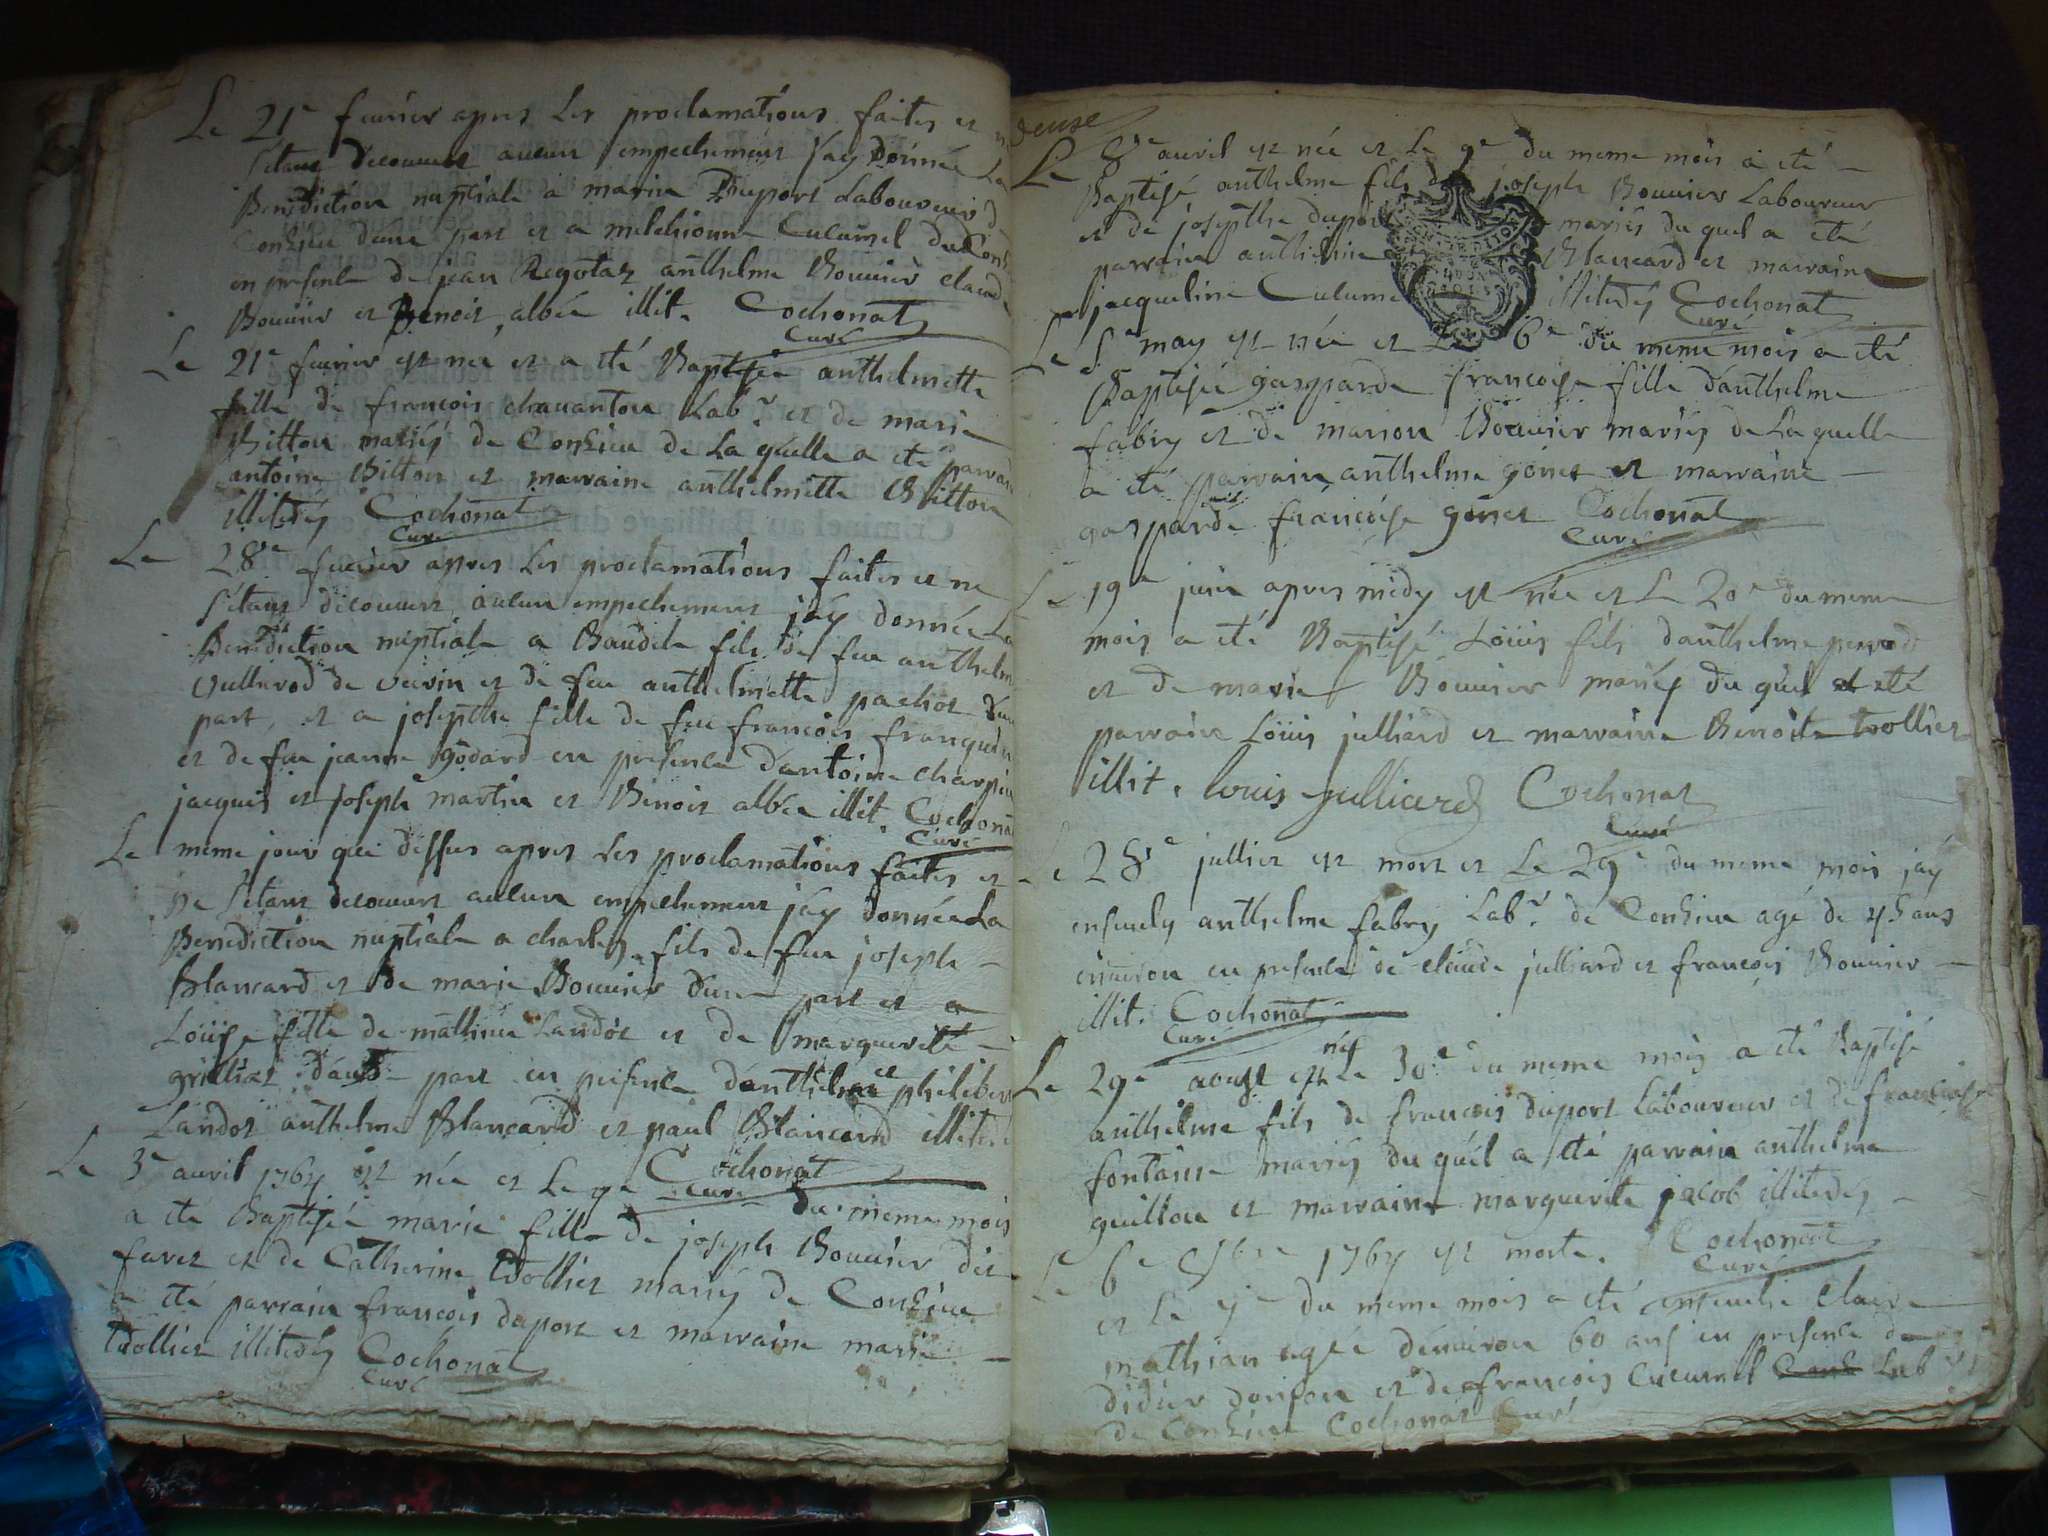 Le 21e feurier apres Les proclamations faites et n
setant decouuert aucun empechement jay donnée La
Benediction nuptiale a marin Duport Laboureur d
Conzieu d'une part et a melchionne Cucumel du
en presence de jean Regotaz anthelme Bouuier claude
Bouuier et Benoit albée illit. Cochonat
Curé
Le 21e feurier est neé et a eté Baptisée anthelmette
fille de francois chauanton Labr. et de marie
Bitton mariés de Conzieu de La quelle a eté parrain
antoine Bitton et marraine anthelmette Bitton
illiteres Cochonat
Curé
Le 28e feurier apres Les proclamations faites et ne
setant decouuert aucun empechement jay donnée La
Benediction nuptiale a Baudile fils de feu anthelm
Vullierod de veirin et de feu anthelmette pachot d'une
part, et a josepthe fille de feu francois franquin
et de feu jeanne godard en presence d'antoine charpin
jacques et joseph martin et Benoit albée illit Cochona
Curé
Le meme jour que dessus apres Les proclamations faites et
ne setant decouuert aucun empechement jay donnée La
Benediction nuptiale a charles fils de feu joseph
Blancard et de marie Bouuier d'une part et a
Loüise fille de mathieu Landoz et de marguerite
grilliat d'autre part en presence d'anthelme philibert
Landoz anthelme Blancard et paul Blancard illit
Le 3e auril 1767 est née et Le 4e Cochonat
Curé
du meme mois
a eté Baptisée marie fille de joseph Bouuier dit
furet et de Catherine trollier mariés de Conzieu
a eté parrain francois duport et marraine marie
trollier illiteres Cochonat
Curé
deuxe
Le 8e auril est née et Le 9e du meme mois a eté
Baptisé anthelme fils de joseph Bouuier Laboureur
et de josepthe dupor mariés du quel a eté
parrain anthelme Blancard et marraine
jacqueline Cucume illiteres Cochonat
Curé
Le 5e may est née et Le 6e du meme mois a eté
Baptisée gasparde francoise fille d'anthelme
fabry et de marion Bouuier mariés de La quelle
a eté parrain anthelme goinet et marraine
gasparde francoise goinet Cochonat
Curé
Le 19e juin apres midy est née et Le 20e du meme
mois a eté Baptisé Loüis fils d'anthelme perrod
et de marie Bouuier mariés du quel a eté
parrain Loüis julliard et marraine Benoite trollier
illit. louis julliard Cochonat
Curé
Le 28e julliet est mort et Le 29e du meme mois jay
enseuely anthelme fabry Labr. de Conzieu agé de 45 ans
enuiron en presence de claude julliard et francois Bouuier
illit. Cochonat
Curé
Le 29e aoust est né Le 30e du meme mois a eté Baptisé
anthelme fils de francois duport Laboureur et de francoise
fontaine mariés du quel a eté parrain anthelme
guillon et marraine marguerite jacob illiteres
Le 6e 1767 est morte. Cochonat
Curé
et Le 7e du meme mois a eté enseuelie Claire
mathian agée d'enuiron 60 ans en presence de
didier et de francois Cucumel Labr
de Conzieu Cochonat Curé